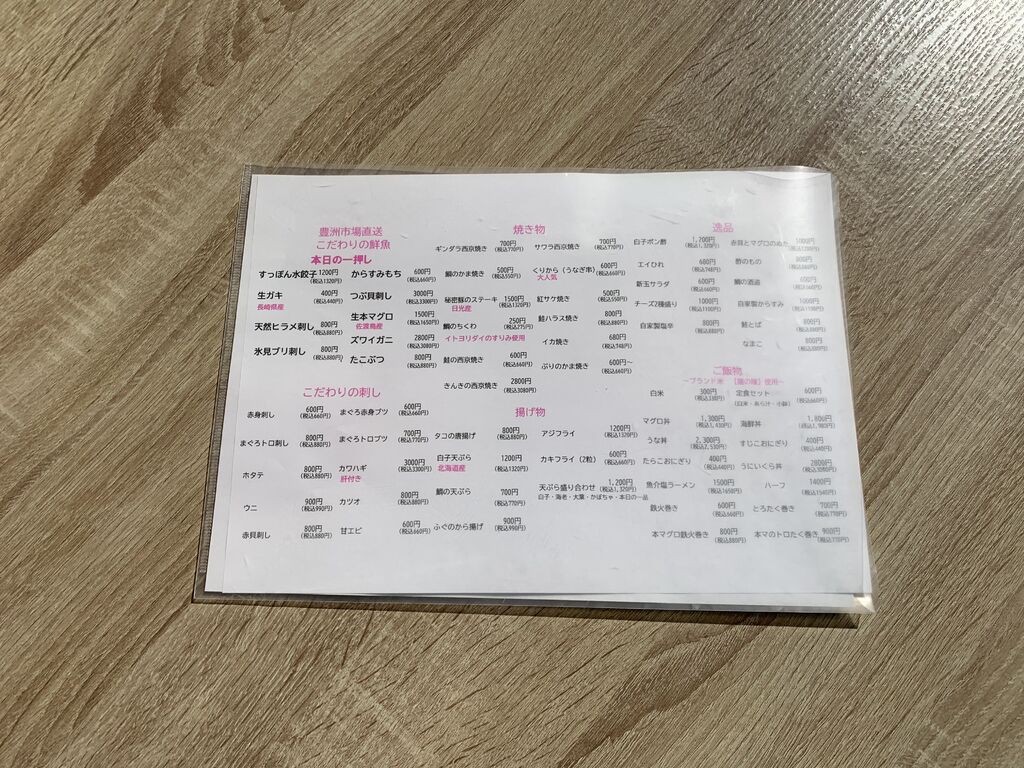 豊洲市場直送
こだわりの鮮魚
本日の一押し
すっぽん水餃子 1200円 (税込1320円)
からすみもち 600円 (税込660円)
生ガキ 400円 (税込440円)
長崎県産
つぶ貝刺し 3000円 (税込3300円)
天然ヒラメ刺し 800円 (税込880円)
生本マグロ 1500円 (税込1650円)
佐渡島産
氷見ブリ刺し 800円 (税込880円)
ズワイガニ 2800円 (税込3080円)
たこぶつ 800円 (税込880円)
こだわりの刺し
赤身刺し 600円 (税込660円)
まぐろ赤身ブツ 600円 (税込660円)
まぐろトロ刺し 800円 (税込880円)
まぐろトロブツ 700円 (税込770円)
ホタテ 800円 (税込880円)
カワハギ 3000円 (税込3300円)
肝付き
ウニ 900円 (税込990円)
カツオ 800円 (税込880円)
赤貝刺し 800円 (税込880円)
甘エビ 600円 (税込660円)
焼き物
ギンダラ西京焼き 700円 (税込770円)
サワラ西京焼き 700円 (税込770円)
鯛のかま焼き 500円 (税込550円)
くりから(うなぎ串) 600円 (税込660円)
大人気
秘密豚のステーキ 1500円 (税込1320円)
日光産
紅サケ焼き 500円 (税込550円)
鯛のちくわ 250円 (税込275円)
イトヨリダイのすり身使用
鮭ハラス焼き 800円 (税込880円)
鮭の西京焼き 600円 (税込660円)
イカ焼き 680円 (税込748円)
きんきの西京焼き 2800円 (税込3080円)
ぶりのかま焼き 600円～ (税込660円)
揚げ物
タコの唐揚げ 800円 (税込880円)
アジフライ 1200円 (税込1320円)
白子天ぷら 1200円 (税込1320円)
北海道産
カキフライ(2粒) 600円 (税込660円)
鯛の天ぷら 700円 (税込770円)
天ぷら盛り合わせ 1,200円 (税込1,320円)
白子・海老・大葉・かぼちゃ・本日の一品
ふぐのから揚げ 900円 (税込990円)
逸品
白子ポン酢 1,200円 (税込1,320円)
赤貝とマグロのぬた 1000円
エイひれ 680円 (税込748円)
酢のもの 800円 (税込880円)
新玉サラダ 600円 (税込660円)
鯛の酒盗 600円 (税込660円)
チーズ2種盛り 1000円 (税込1100円)
自家製からすみ 1000円 (税込1100円)
自家製塩辛 800円 (税込880円)
鮭とば 800円 (税込880円)
なまこ 800円 (税込880円)
ご飯物
～ブランド米 【龍の瞳】使用～
白米 300円 (税込330円)
定食セット 600円 (税込660円)
(白米・あら汁・小鉢)
マグロ丼 1,300円 (税込1,430円)
海鮮丼 1,800円 (税込1,980円)
うな丼 2,300円 (税込2,530円)
すじこおにぎり 400円 (税込440円)
たらこおにぎり 400円 (税込440円)
うにいくら丼 2800円 (税込3080円)
魚介塩ラーメン 1500円 (税込1650円)
ハーフ 1400円 (税込1540円)
鉄火巻き 600円 (税込660円)
とろたく巻き 700円 (税込770円)
本マグロ鉄火巻き 800円 (税込880円)
本マのトロたく巻き 900円 (税込770円)